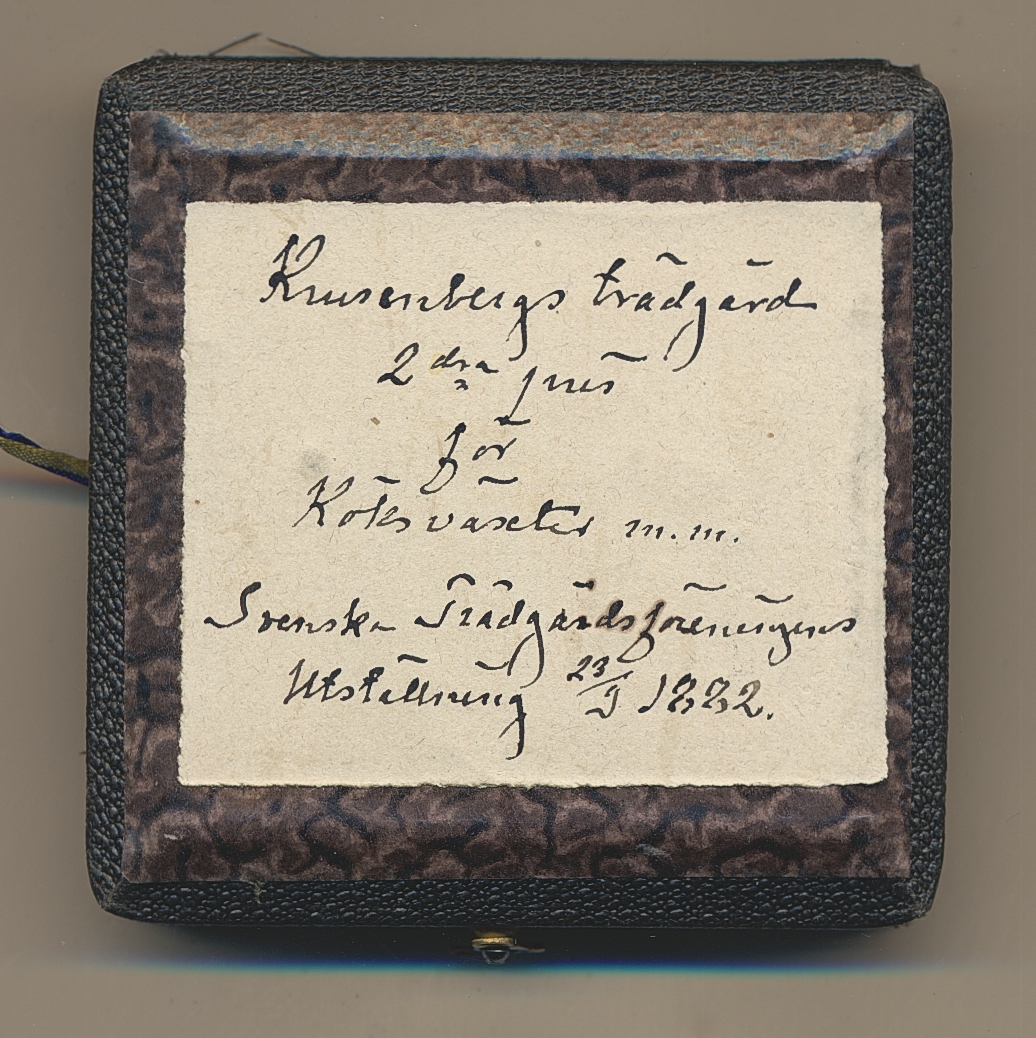 Krusenbergs trädgård
2dra pris
för
Köksväxter m.m.
Svenska Trädgårdsföreningens
Utställning 23/9 1882.